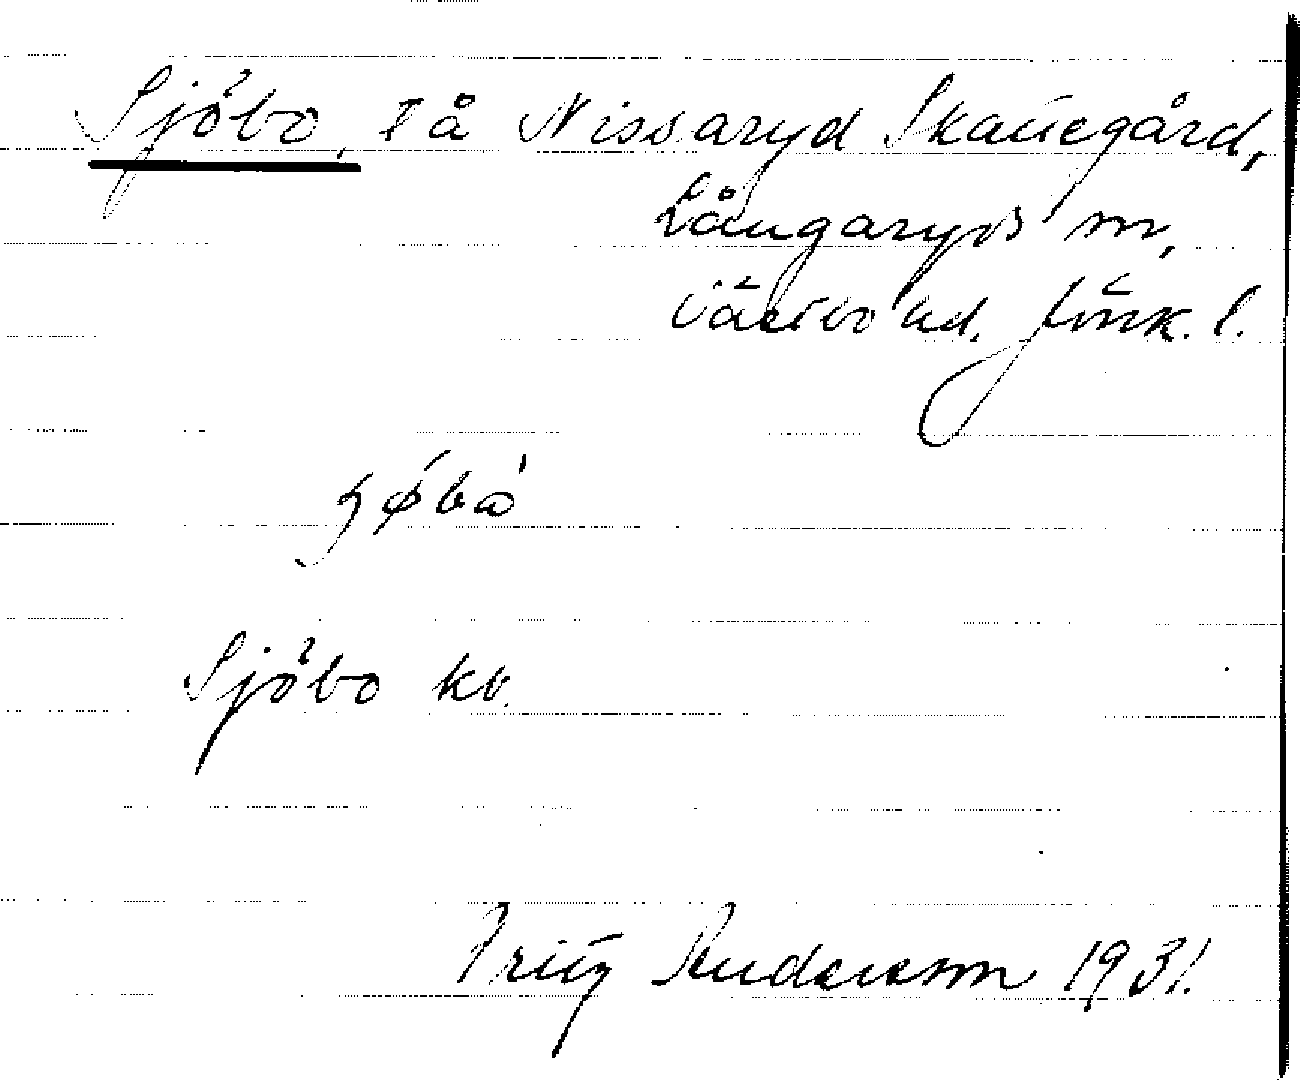 Sjöbo, på Nissaryd Skattegård,
Långaryds sn,
Västbo hd. Jönk. l.
Sjöbo kb.
Fritz Andersson 1931.